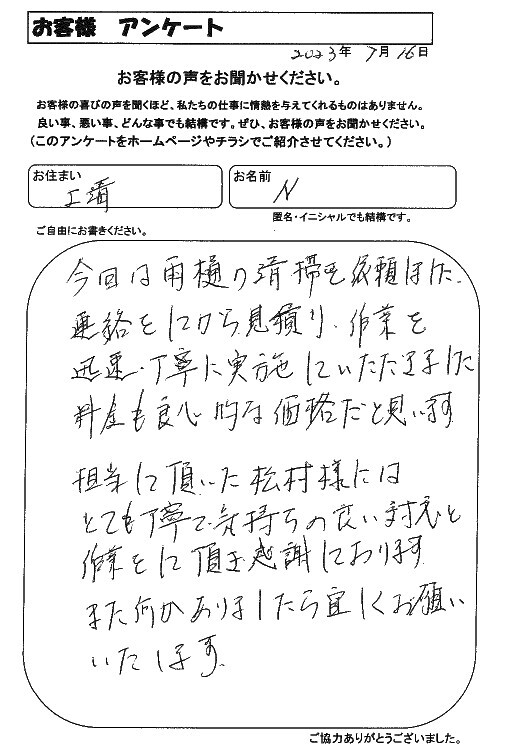 お客様 アンケート
2023年 7月 16日
お客様の声をお聞かせください。
お客様の喜びの声を聞くほど、私たちの仕事に情熱を与えてくれるものはありません。
良い事、悪い事、どんな事でも結構です。ぜひ、お客様の声をお聞かせください。
(このアンケートをホームページやチラシでご紹介させてください。)
お住まい
お名前
N
匿名・イニシャルでも結構です。
ご自由にお書きください。
今回は雨樋の清掃を依頼した。
連絡をしてから見積り、作業を
迅速・丁寧に実施していただきました
料金も良心的な価格だと思います
担当して頂いた松村様には
とても丁寧で気持ちの良い対応と
作業をして頂き感謝しております
また何かありましたら宜しくお願い
いたします。
ご協力ありがとうございました。